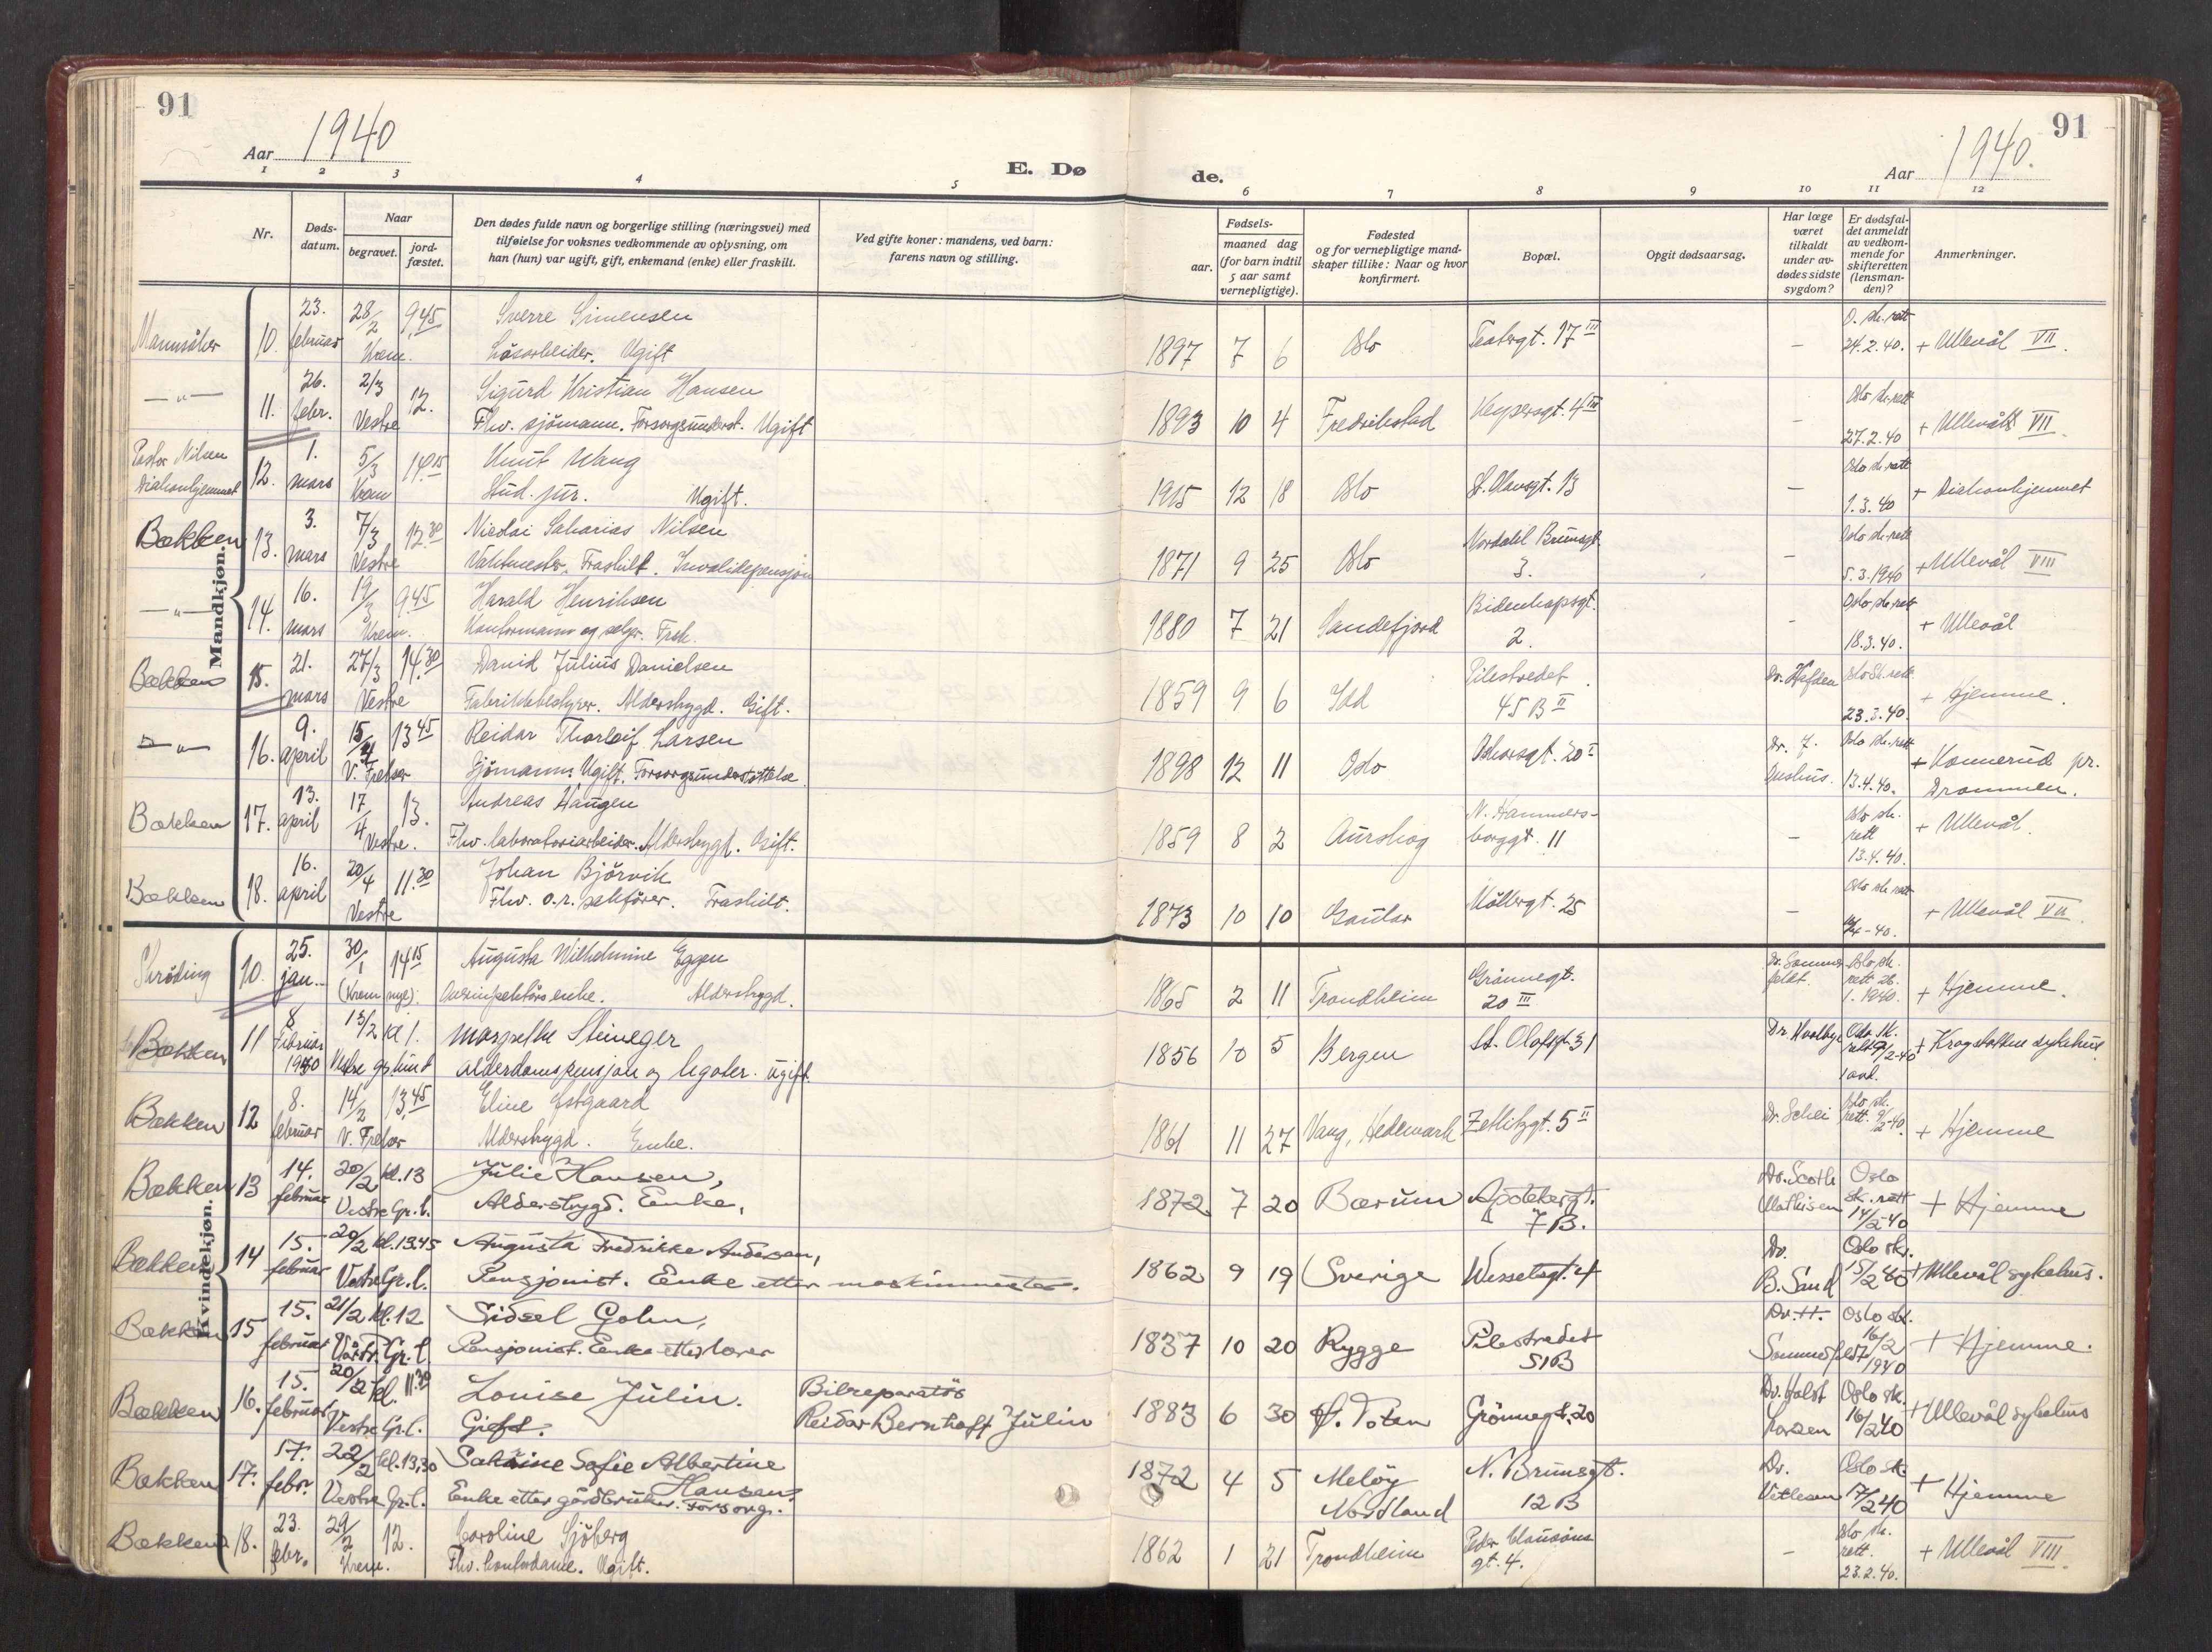 91
Aar 1940
E. Dø
de.
Aar 1940.
91
1 2 3 4 5 6 7 8 9 10 11 12
Nr.
Døds-datum.
Naar
begravet.
jord-fæstet.
Den dødes fulde navn og borgerlige stilling (næringsvei) med
tilføielse for voksnes vedkommende av oplysning, om
han (hun) var ugift, gift, enkemand (enke) eller fraskilt.
Ved gifte koner: mandens, ved barn:
farens navn og stilling.
Fødsels-
aar.
maaned dag
(for barn indtil
5 aar samt
vernepligtige).
Fødested
og for vernepligtige mand-
skaper tillike: Naar og hvor
konfirmert.
Bopæl.
Opgit dødsaarsag.
Har læge
været
tilkaldt
under av-
dødes sidste
sygdom?
Er dødsfal-
det anmeldt
av vedkom-
mende for
skifteretten
(lensman-
den)?
Anmerkninger.
Mandkjøn.
Mannsåker 10. 23. februar 28/2 Krem. 9,45 Sverre Simensen 1897 7 6 Oslo 17 III – O. sk. rett 24.2.40. + Ullevål VII.
Løsarbeider. Ugift
— " — 11. 26. febr. 2/3 Vestre 12. Sigurd Kristian Hansen 1893 10 4 Fredrikstad Keysersgt. 4 III – Oslo sk. rett 27.2.40 + Ullevål VII.
Fhv. sjömann. Forsorgsunderst. Ugift
Pastor Nilsen Diakonhjemmet 12. 1. mars 5/3 Krem 14.15 Knut Wang 1915 12 18 Oslo St. Olavsgt. 13 – Oslo sk. rett 1.3.40 + Diakonhjemmet
Stud. jur. Ugift.
Bækken 13. 3. mars 7/3 Vestre 12.30 Nicolai Sakarias Nilsen 1871 9 25 Oslo Nordahl Brunsgt. 3. – Oslo sk. rett 5.3.1940 + Ullevål VIII
Vaktmester. Fraskilt. Invalidepensjon
— " — 14. 16. mars 19/3 Krem. 9.45 Harald Henriksen 1880 7 21 Sandefjord Bidenkapsgt. 2. – Oslo sk. rett 18.3.40. + Ullevål
Kontormann og selger. Frsk.
Bækken 15. 21. mars 27/3 Vestre 14.30 David Julius Danielsen 1859 9 6 Idd Pilestredet 45 B II Oslo Sk. rett 23.3.40. + Hjemme.
Fabrikkbestyrer. Alderstrygd. Gift.
— " — 16. 9. april 15/4 V. Frelser 13 45 Reidar Thorleif Larsen 1898 12 11 Oslo Oskarsgt. 20 I Oslo sk. rett 13.4.40. + Konnerud pr. Drammen.
Sjömann. Ugift. Forsorgsunderstöttelse.
Bækken 17. 13. april 17/4 Vestre. 13. Andreas Haugen 1859 8 2 Aurskog N. Hammersborggt. 11 – Oslo sk. rett 13.4.40. + Ullevål.
Fhv. laboratoriearbeider. Alderstrygd. Gift.
Bækken 18. 16. april 20/4 Vestre 11.30 Johan Björvik 1873 10 10 Gaular Möllergt. 25 – Oslo sk. rett + Ullevål VII.
Fhv. o.r. sakförer. Fraskilt.
Kvindekjøn.
Skröding 10. 25. jan. 30/1 (Krem nye). 14 15 Augusta Wilhelmine Eggen 1865 2 11 Trondheim Grönnegt. 20 III Dr. Sommerfeldt. Oslo sk. rett 26. 1. 1940. + Hjemme.
Alderstrygd.
Bækken 11 8 Februar 1940 13/2 kl 1. Vestre gravlund Margrethe Steineger 1856 10 5 Bergen St. Olafsgt 31 Oslo sk. rett 9/2-40 + Krogstöttens sykehus.
alderdomspensjon og legater. ugift.
Bækken 12 8. februar 14/2 V. Frelser 13,45 Eline Östgaard 1861 11 27 Vang, Hedemark Zetlitzgt. 5 II Dr. Schei Oslo sk. rett. 9/2-40. + Hjemme
Alderstrygd. Enke.
Bækken 13 14. februar 20/2 kl. 13 Vestre Gr. l. Julie Hansen, 1872 7 20 Bærum Apotekergt. 7 B. Dr. Scoth Mathisen Oslo sk. rett 14/2-40 + Hjemme
Alderstrygd. Enke.
Bækken 14 15. februar 20/2 kl. 13.45 Vestre Gr. l. Augusta Fredrikke Andersen, 1862 9 19 Sverige Wesselsgt. 4 Dr. B. Sand Oslo sk. 15/2 40 + Ullevål sykehus.
Pensjonist. Enke etter maskinmester.
Bækken 15 15. februar 21/2 kl. 12 Vår Fr. Gr. l. Sidsel Gohn, 1837 10 20 Rygge Pilestredet 51B Dr. H. Sommerfeldt Oslo sk. 16/2 1940 + Hjemme.
Pensjonist. Enke etter lærer
Bækken 16. 15. februar 20/2 kl. 11.30 Vestre Gr. l. Louise Julin. Bilreparatör 1883 6 30 Ö. Toten Grönnegt. 20 Dr. Holst Larsen Oslo sk. 16/2 40 + Ullevål sykehus
Gift. Reidar Bernhoft Julin
Bækken 17. 17. febr. 22/2 kl. 13,30 Vestre Gr. l. Sofie Albertine Hansen. 1872 4 5 Melöy Nordland N. Brunsgt. 12 B Dr. Vetlesen Oslo sk. 17/2 40 + Hjemme
Enke etter gårdbruker. Forsorg.
Bækken 18. 23. febr. 29/2 Krem. 12. Caroline Sjöberg 1862 1 21 Trondheim Peder Claussöns gt. 4. – Oslo sk. rett. 23.2.40. + Ullevål VIII.
Fhv. kontordame. Ugift.